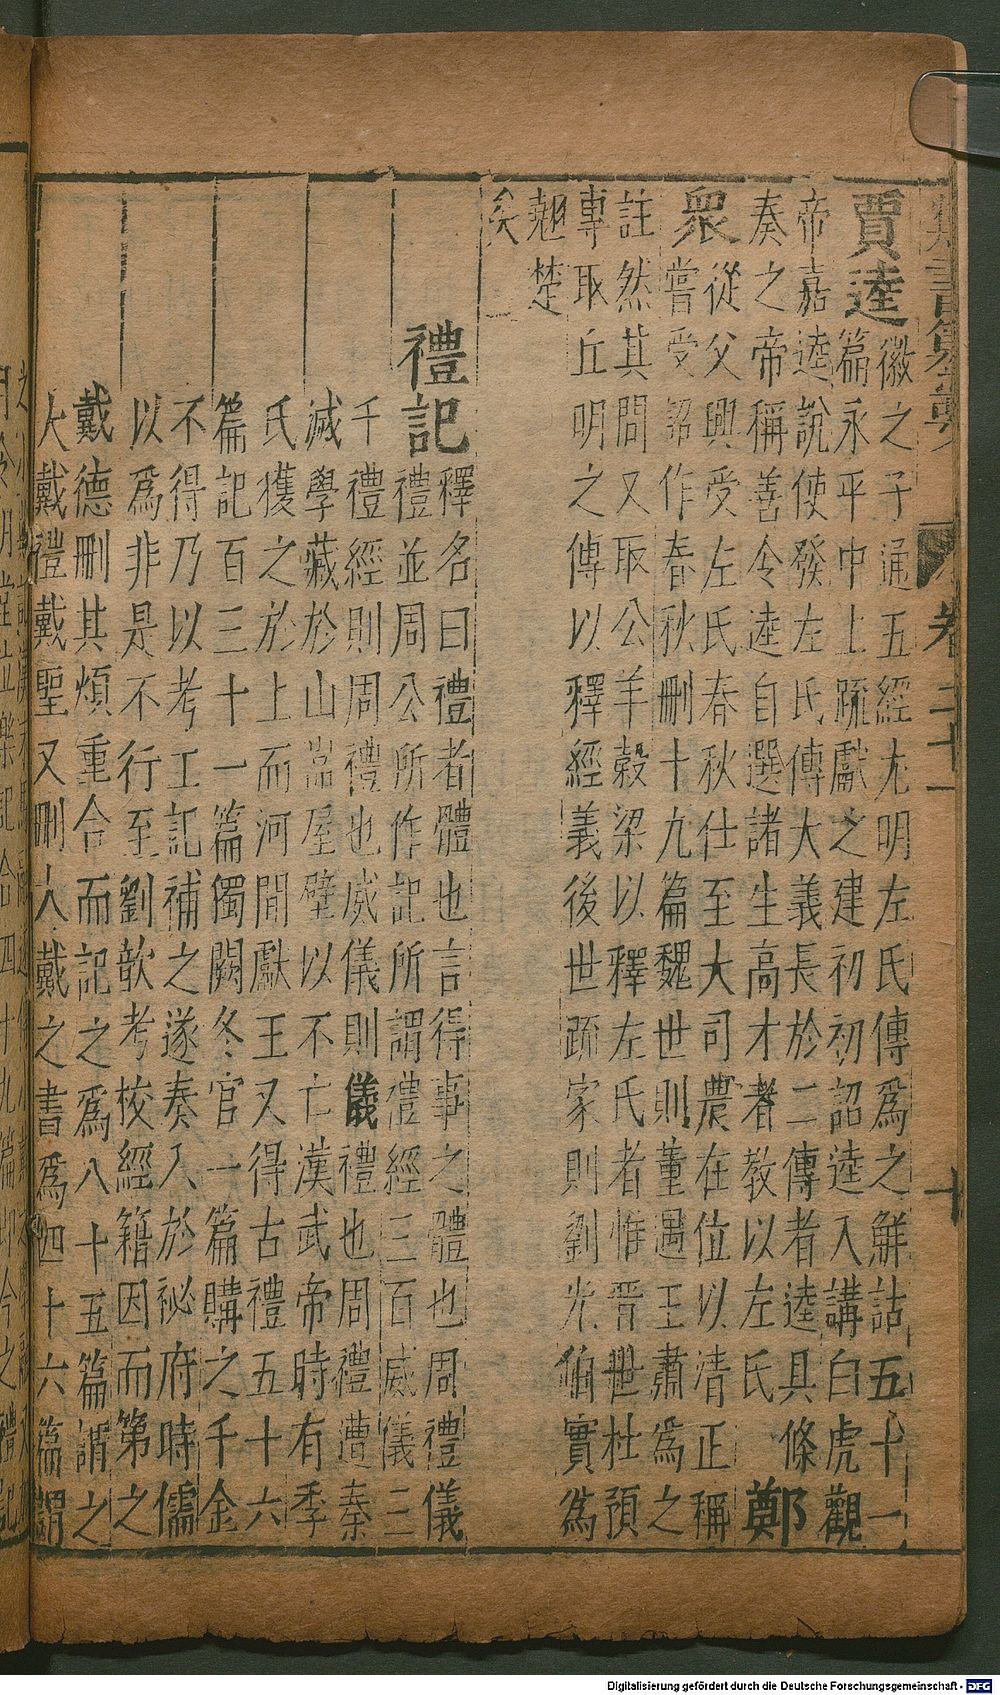 書纂要 卷二十一 十
賈逵
徽之子通五經尤明左氏傳為之解詁五十一
篇永平中上疏獻之建初初詔逵入講白虎觀
帝嘉逵說使發左氏傳大義長於二傳者逵具條
奏之帝稱善令逵自選諸生高才者教以左氏
鄭
眾
從父興受左氏春秋仕至大司農在位以清正稱
嘗受詔作春秋刪十九篇魏世則董遇王肅為之
註然其問又取公羊穀梁以釋左氏者惟晉世杜預
專取丘明之傳以釋經義後世疏家則劉光伯實為
翹楚
矣
禮記
釋名曰禮者體也言得事之體也周禮儀
禮並周公所作記所謂禮經三百威儀三
千禮經則周禮也威儀則儀禮也周禮遭秦
滅學藏於山嵓屋壁以不亡漢武帝時有季
氏獲之於上而河間獻王又得古禮五十六
篇記百三十一篇獨闕冬官一篇購之千金
不得乃以考工記補之遂奏入於祕府時儒
以為非是不行至劉歆考校經籍因而第之
戴德刪其煩重合而記之為八十五篇謂之
大戴禮戴聖又刪大戴之書為四十六篇謂
月令明堂位樂記合四十九篇即今之禮記
Digitalisierung gefördert durch die Deutsche Forschungsgemeinschaft - DFG